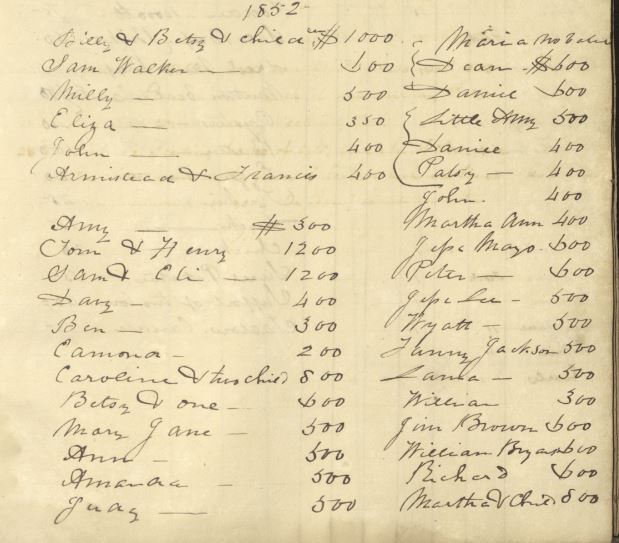 1852
Billy & Betsy & child $ 1000
Sam Walker — 600
Milly — 500
Eliza — 350
John — 400
Armistead & Francis 400
Amy — $ 300
Tom & Henry 1200
Sam & Eli — 1200
Davy — 400
Ben — 300
Edmond — 200
Caroline & two child 800
Betsy & one — 600
Mary Jane — 500
Ann — 500
Amanda — 500
Judy — 500
Maria no value
Dean $600
Daniel 600
Little Amy 500
Daniel 400
Patsy — 400
John. 400
Martha Ann 400
Jesse Mayo. 600
Peter — 600
Jesse Lee — 500
Wyatt — 500
Fanny Jackson 500
— 500
William 300
Jim Brown 600
William Bryan 600
Richard 600
Martha & Child 800